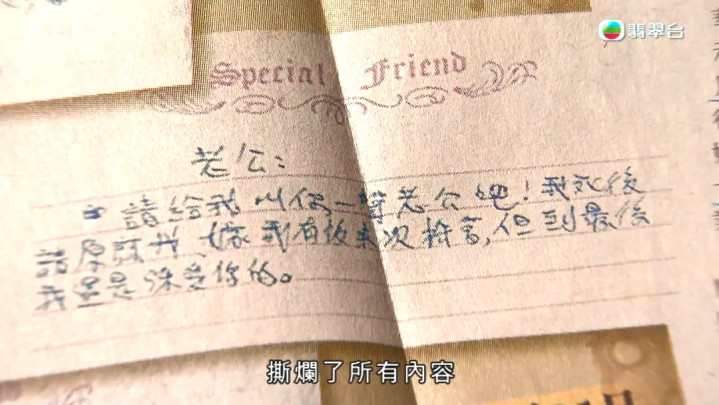 翡翠台
Special Friend
老公:
請給我叫你一聲老公吧!我死後
請原諒我,我有,但到最後
我還是深愛你的。
撕爛了所有內容